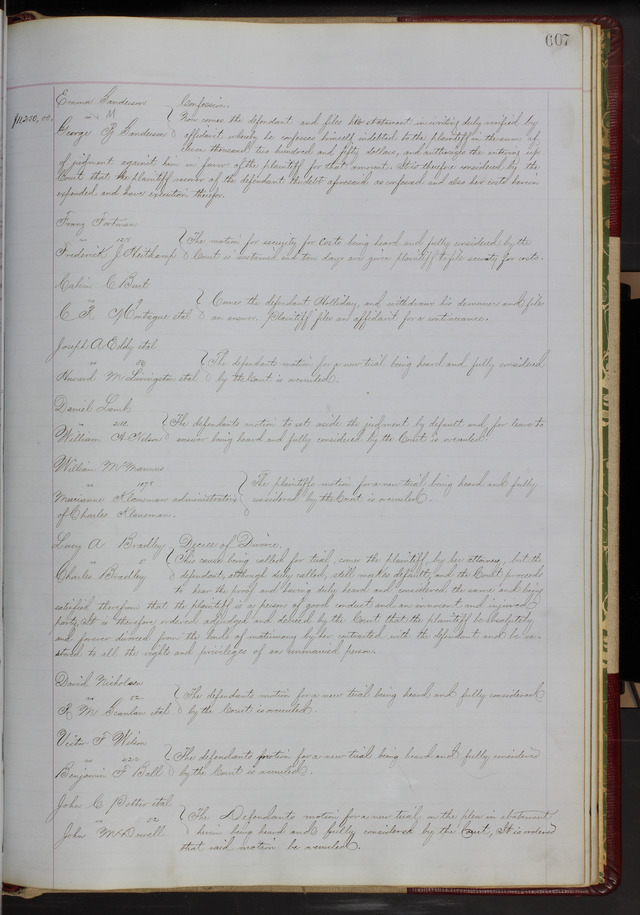 607
Emma Sanderson Confession.
$11,250.00. vs M Now comes the defendant and files his statement in writing duly verified by
George P Sanderson affidavit whereby he confesses himself indebted to the plaintiff in the sum of
eleven thousand two hundred and fifty dollars, and authorizes the entering up
of judgment against him in favor of the plaintiff for that amount. It is therefore considered by the
Court that the plaintiff recover of the defendant the debt aforesaid as confessed and also her costs herein
expended and have execution therefor.
Franz Fortman
vs The motion for security for costs being heard and fully considered by the
Frederick J Heitkamp Court is sustained and ten days are given plaintiff to file security for costs.
Calvin C Burt
vs Comes the defendant Holliday, and withdraws his demurrer and files
C R Montague etal an answer. Plaintiff files an affidavit for a continuance.
Joseph A Eddy etal
vs The defendants motion for a new trial being heard and fully considered
Howard M Livingston etal by the Court is overruled.
Daniel Lamb
vs The defendants motion to set aside the judgment by default and for leave to
William A Nelson answer being heard and fully considered by the Court is overruled.
William McManus
vs The plaintiffs motion for a new trial being heard and fully
Marianne Klausman administratrix considered by the Court is overruled.
of Charles Klausman.
Lucy A Bradley Decree of Divorce.
vs This cause being called for trial, comes the plaintiff by her attorney, but the
Charles Bradley defendant, although duly called, still makes default, and the Court proceeds
to hear the proof and having duly heard and considered the same and being
satisfied therefrom that the plaintiff is a person of good conduct and an innocent and injured
party, It is therefore ordered adjudged and decreed by the Court that the plaintiff be absolutely
and forever divorced from the bonds of matrimony by her contracted with the defendant and be re-
stored to all the rights and privileges of an unmarried person.
David Nicholson
vs 52 The defendants motion for a new trial being heard and fully considered
R M Scanlan etal by the Court is overruled.
Victor F Wilson
vs The defendants motion for a new trial being heard and fully considered
Benjamin F Ball by the Court is overruled.
John C Potter etal
vs 52 The Defendants motion for a new trial, on the plea in abatement
John McDowell herein being heard and fully considered by the Court, It is ordered
that said motion be overruled.